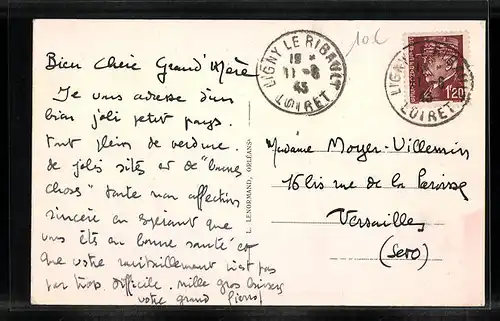 Bien Chère Grand'Mère
Je vous adresse d'un
bien joli petit pays.
tout plein de verdure.
de jolis sites et de "bonnes
choses" toute mon affection
sincère en espérant que
vous êts en bonne santé et
que votre ravitaillement n'est pas
par trop difficile. Mille gros baisers
votre grand Pierrot
L. LENORMAND, ORLÉANS
10 €
LIGNY LE RIBAULT
11-6
43
LOIRET
LOIRET
1F20
Madame Moyer-Villemin
16 bis rue de la Paroisse
Versailles
(S et O)